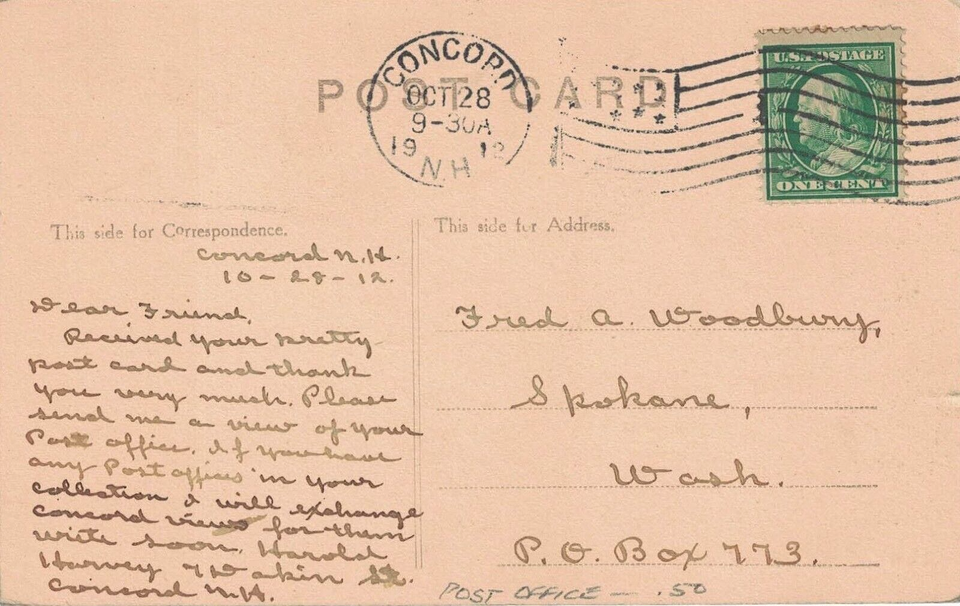 POST CARD
CONCORD
OCT 28
9-30A
1912
N.H.
U.S. POSTAGE
ONE CENT
This side for Correspondence.
This side for Address.
Concord N.H.
10-28-12.
Dear Friend,
Received your pretty
post card and thank
you very much. Please
send me a view of your
Post office. If you have
any Post offices in your
collection I will exchange
Concord views for them
write soon. Harold
Harvey 7 Dakin St.
Concord N.H.
Fred A. Woodbury,
Spokane,
Wash.
P.O. Box 773.
POST OFFICE — .50